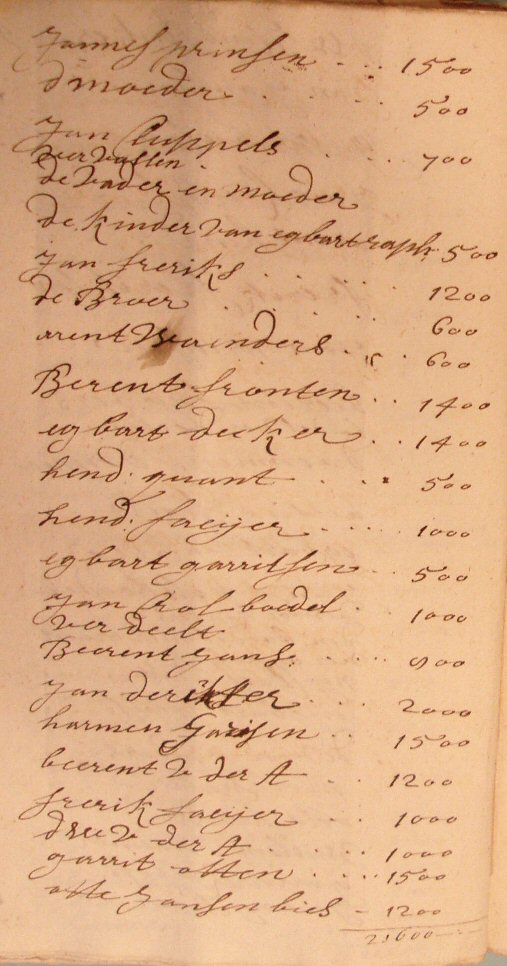 Jannes prinsen . . . 1500
d moeder . . . 500
Jan Cuppels . . . 700
ver vallen
de vader en moeder
de kinder van egbart raph 500
Jan freriks . . . 1200
de Broer . . . 600
arent Wainders . . . 600
Berent fronten . . 1400
egbart decker . . 1400
hend. quant . . . 500
hend. faeijer . . . 1000
egbart garritsen . . 500
Jan Rof boedel . 1000
ver deelt
Beerent Jans . . . 900
Jan . . . 2000
harmen . . 1500
beerent v der A . . 1200
frerik faeijer . . . 1000
v der A . . . 1000
garrit otten . . . 1500
otte Jansen bies - 1200
21600